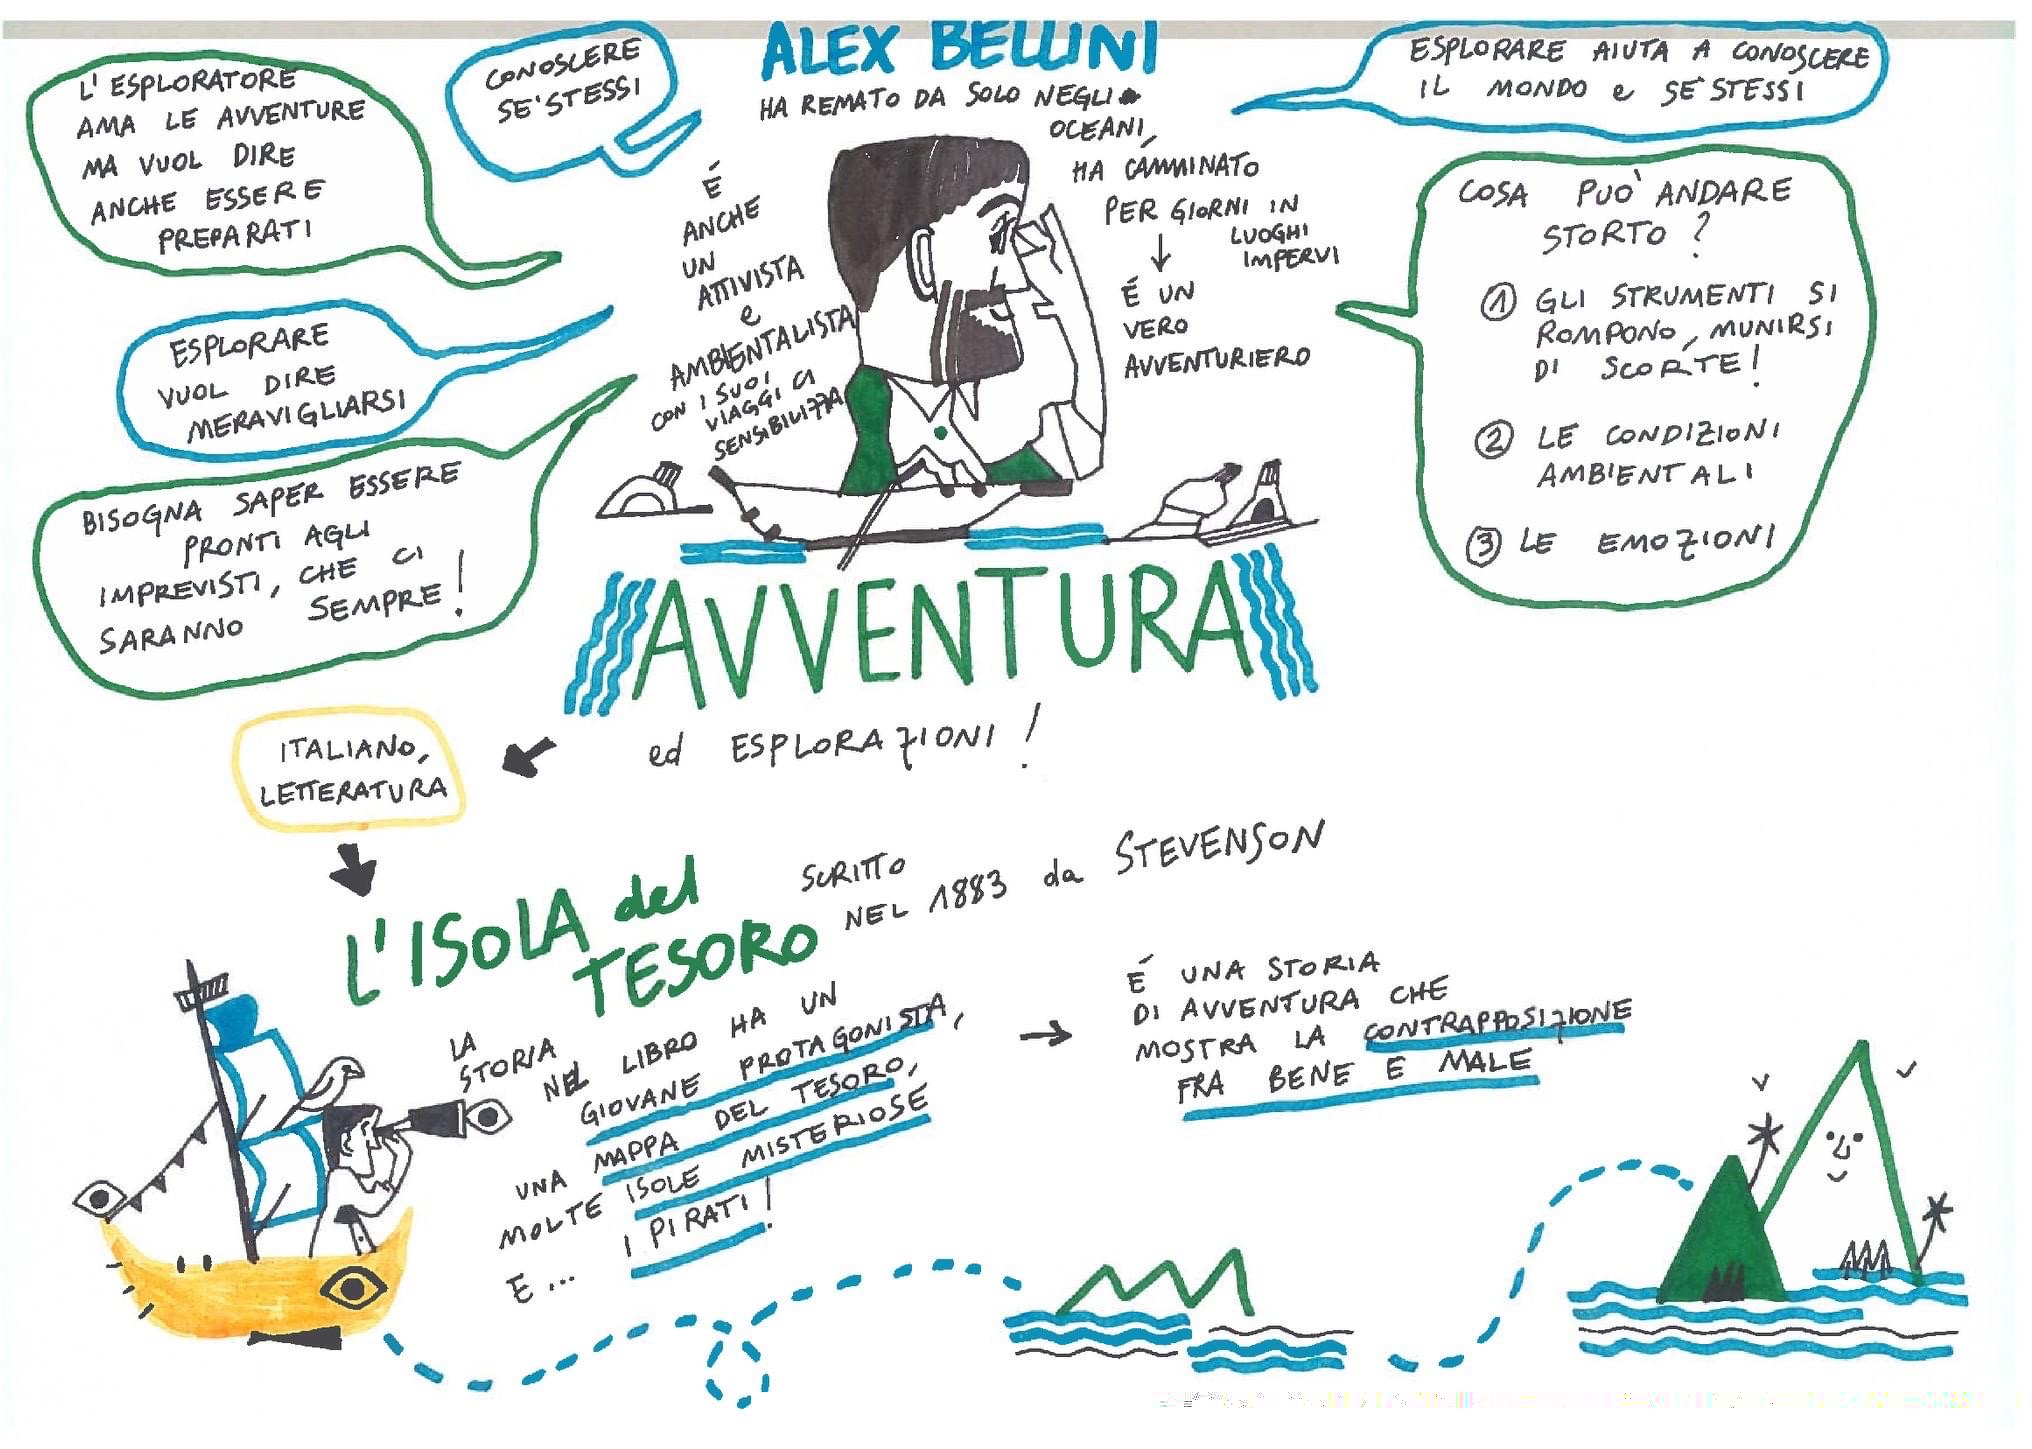 ALEX BELLINI
HA REMATO DA SOLO NEGLI
OCEANI,
HA CAMMINATO
PER GIORNI IN
LUOGHI
IMPERVI
É UN
VERO
AVVENTURIERO
É
ANCHE
UN
ATTIVISTA
e
AMBIENTALISTA
CON I SUOI
VIAGGI CI
SENSIBILIZZA
L'ESPLORATORE
AMA LE AVVENTURE
MA VUOL DIRE
ANCHE ESSERE
PREPARATI
CONOSCERE
SE'STESSI
ESPLORARE
VUOL DIRE
MERAVIGLIARSI
BISOGNA SAPER ESSERE
PRONTI AGLI
IMPREVISTI, CHE CI
SARANNO SEMPRE!
ESPLORARE AIUTA A CONOSCERE
IL MONDO e SE'STESSI
COSA PUO' ANDARE
STORTO?
1 GLI STRUMENTI SI
ROMPONO, MUNIRSI
DI SCORTE!
2 LE CONDIZIONI
AMBIENTALI
3 LE EMOZIONI
AVVENTURA
ed ESPLORAZIONI!
ITALIANO,
LETTERATURA
L'ISOLA del
TESORO
SCRITTO
NEL 1883 da STEVENSON
LA
STORIA
NEL LIBRO HA UN
GIOVANE PROTAGONISTA,
UNA MAPPA DEL TESORO,
MOLTE ISOLE MISTERIOSE
E... I PIRATI!
É UNA STORIA
DI AVVENTURA CHE
MOSTRA LA CONTRAPPOSIZIONE
FRA BENE E MALE